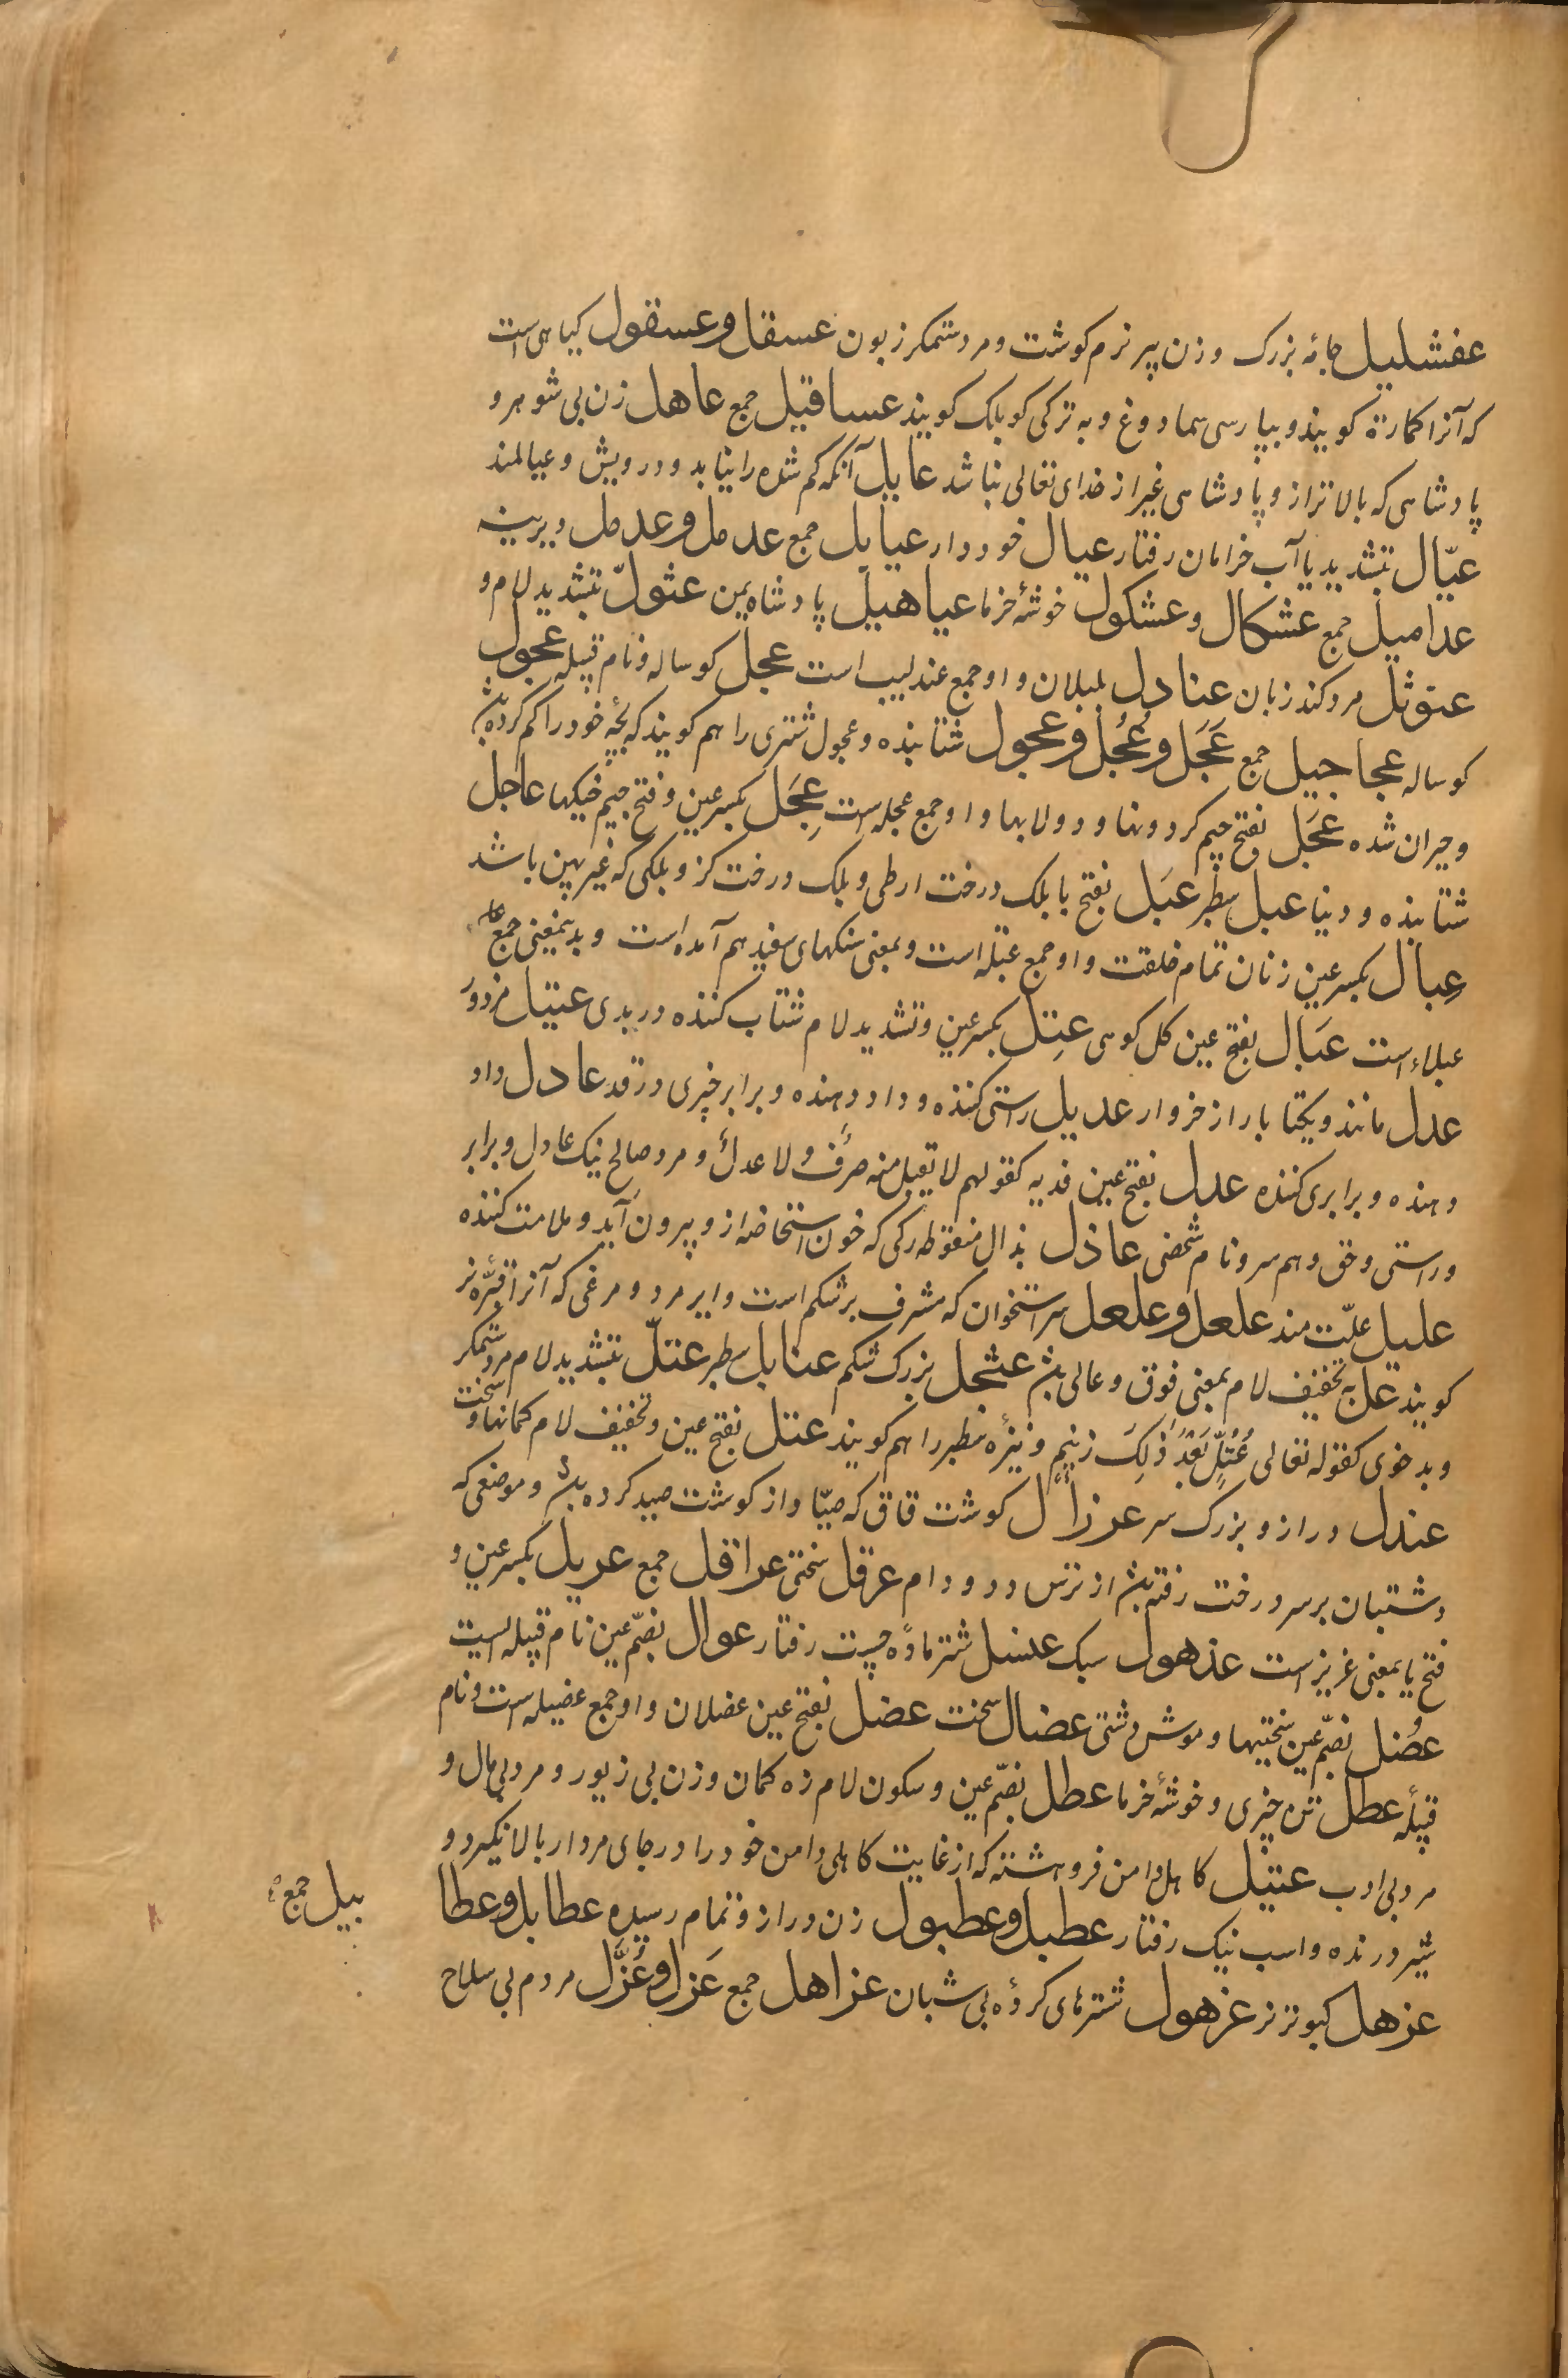 عفشلیل جامهٔ بزرک و زن پیر نرم کوشت و مرد ستمکر زبون عسقل و عسقول کیاهی است
که آنرا کمارة کویند و بپارسی سماروغ و به ترکی کوبلک کویند عساقیل جمع عاهل زن بی شوهر و
پادشاهی که بالاتر از و پادشاهی غیر از خدای تعالی نباشد عایل آنکه کم شده را نیابد و درویش و عیالمند
عیّال بتشدید یا آب خرامان رفتار عیال خوددار عیایل جمع عدمل و عدمل دیرینه
عدامیل جمع عشکال و عشکول خوشهٔ خرما عیاهیل پادشاه یمن عثولّ بتشدید لام و
عنوثل مرد کند زبان عنادل بلبلان و او جمع عندلیب است عجل کوساله و نام قبیله عجول
کوساله عجاجیل جمع عَجَل و عُجُل و عجول شتابنده و عجول شتری را هم کویند که بچهٔ خود را کم کرده باشد
و حیران شده عَجَل بفتح جیم کردونها و دولابها و او جمع عجله است عِجَل بکسر عین و فتح جیم خیکها عاجل
شتابنده و دنیا عبل سطبر عبَل بفتح با بلک درخت ارطی و بلک درخت کز و بلکی که غیر پهن باشد
عِبال بکسر عین زنان تمام خلقت و او جمع عبله است و بمعنی سنکهای سفید هم آمده است و بدیمعنی جمع
عبلاء است عبَال بفتح عین کل کوهی عِتِلّ بکسر عین و تشدید لام شتاب کننده در بدی عتیل مزدور
عدل مانند و یکتا بار از خروار عدیل راستی کننده و داد دهنده و برابر چیزی در قد عادل داد
دهنده و برابری کننده عدل بفتح عین فدیه کقولهم لا تقبل منه صرفٌ ولا عدلٌ و مرد صالح نیک عادل و برابر
و راستی و حق و هم سر و نام شخصی عاذل بذال منقوطه رکی که خون استحاضه از و بیرون آید و ملامت کننده
علیل علّت مند علعل و علعل سر استخوان که مشرف بر شکم است و ایر مرد و مرغی که آنرا قنبره نر
کویند عل به تخفیف لام بمعنی فوق و عالی باشد عثجل بزرک شکم عنابل سطبر عتلّ بتشدید لام مرد ستمکر سخت
و بد خوی کقوله تعالی عُتُلٍّ بَعْدَ ذٰلِكَ زنیم و نیزهٔ سطبر را هم کویند عتل بفتح عین و تخفیف لام کمانها و
عندل دراز و بزرک سر عرزال کوشت قاق که صیّاد از کوشت صید کرده باشد و موضعی که
دشتبان بر سر درخت رفته باشد از ترس دد و دام عرقل سختی عراقل جمع عریل بکسر عین و
فتح یا بمعنی غریز است عذهول سبک عنسل شتر مادهٔ چست رفتار عوال بضمّ عین نام قبیله ایست
عُضل بضمّ عین سختیها و موش دشتی عضال سخت عضل بفتح عین عضلان و او جمع عضیله است و نام
قبیله عطل تنهٔ چیزی و خوشهٔ خرما عطل بضمّ عین و سکون لام زه کمان و زن بی زیور و مرد بی مال و
مرد بی ادب عتیل کاهل دامن فرو هشته که از غایت کاهلی دامن خود را در جای مردار بالا نکیرد و
شیر درنده و اسب نیک رفتار عطبل و عطبول زن دراز و تمام رسیده عطابل و عطا
بیل جمع
عزهل کبوتر نر عزهول شترهای کروه بی شبان عزاهل جمع عَزل و عُزَّل مردم بی سلاح